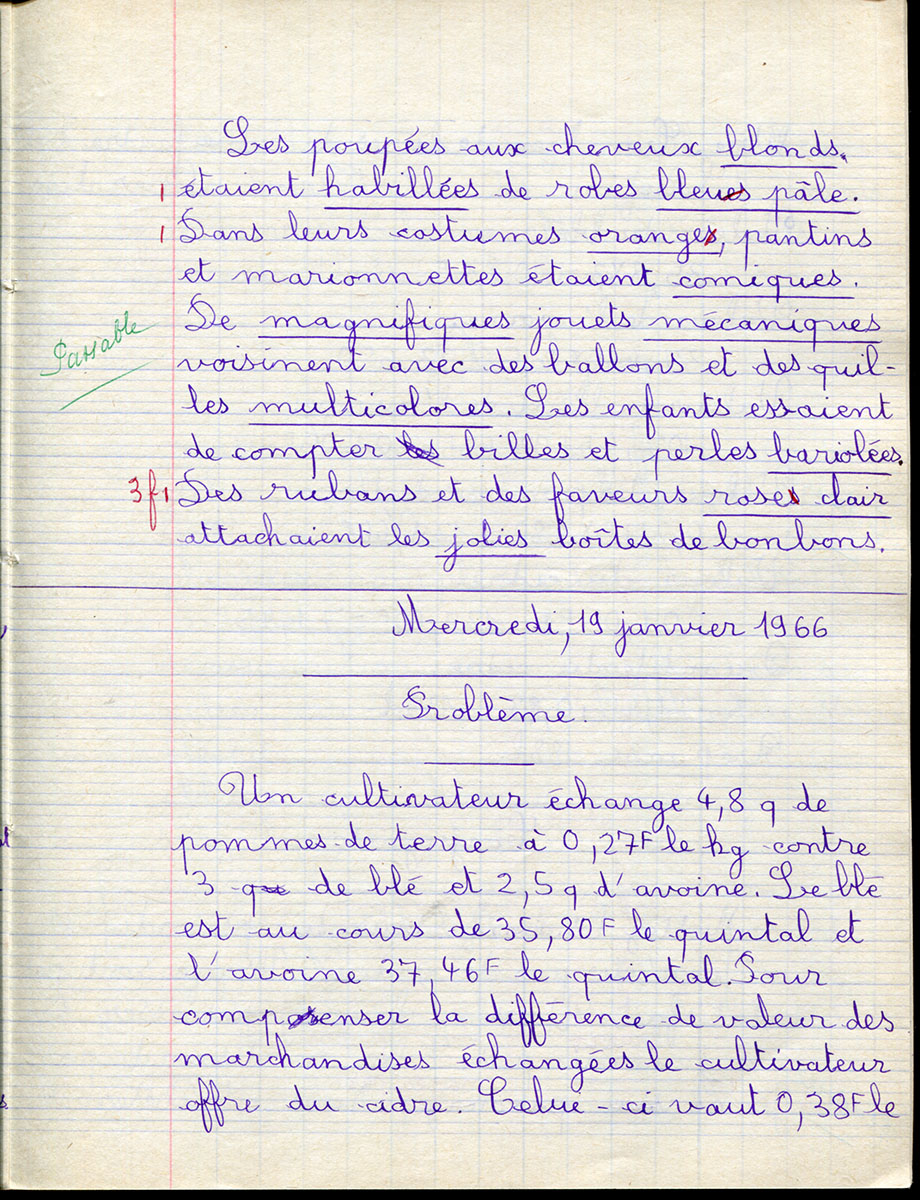 Les poupées aux cheveux blonds,
1 étaient habillées de robes bleues pâle.
1 Dans leurs costumes oranges, pantins
et marionnettes étaient comiques.
De magnifiques jouets mécaniques
Passable
voisinent avec des ballons et des quil-
les multicolores. Les enfants essaient
de compter les billes et perles bariolées.
3f 1 Des rubans et des faveurs roses clair
attachaient les jolies boîtes de bonbons.
Mercredi, 19 janvier 1966
Problème.
Un cultivateur échange 4,8 q de
pommes de terre à 0,27F le kg contre
3 q de blé et 2,5 q d'avoine. Le blé
est au cours de 35,80F le quintal et
l'avoine 37,46F le quintal. Pour
compenser la différence de valeur des
marchandises échangées le cultivateur
offre du cidre. Celui-ci vaut 0,38F le